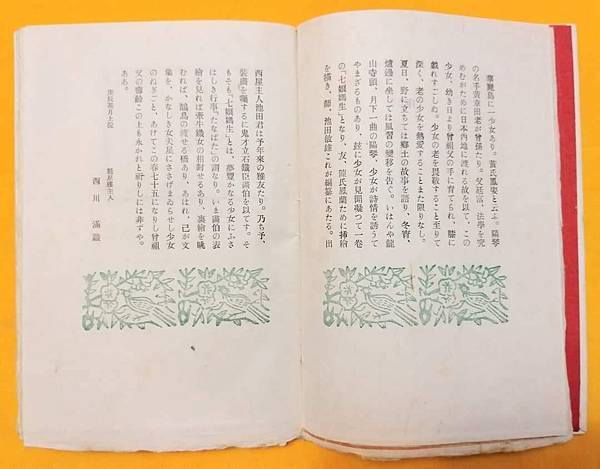 華麗島に一少女あり。黄氏鳳姿と云ふ。陽琴
の名手黄章田老が曾孫たり。父廷富、法學を究
めむがために日本内地に渡れる故を以て、この
少女、幼き日より曾祖父の手に育てられ、膝に
戯れすごしぬ。少女の老を畏敬すること至りて
深く、老の少女を熱愛することまた限りなし。
夏日、野に立ちては郷土の故事を語り、冬宵、
爐邊に坐しては風習の變移を告ぐ。いはんや龍
山寺頭、月下一曲の陽琴、少女が詩情を誘うて
やまざるものあり、玆に少女が見聞凝つて一卷
の「七娘媽生」となり、友、陳氏鳳蘭ために挿繪
を描き、師、池田敏雄これが編纂にあたる。出
西屋主人池田君は予年來の雅友たり。乃ち予、
裝幀を囑するに鬼才立石鐵臣畫伯を以てす。そ
もそも、「七娘媽生」とは、夢豐かなる少女にふさ
はしき行事、「たなばた」の謂なり。いま畫伯の表
繪を見れば牽牛織女の相對せるあり、裏繪を眺
むれば、鵲鳥の渡せる橋あり、あはれ、己が文
集を、かなしき女夫星にささげまゐらせし少女
のねぎごと、あけてこの春七十五になりし曾祖
父の壽齡この上も永かれと祈りしには非ずや。
ああ。
庚辰
主人
西川滿識